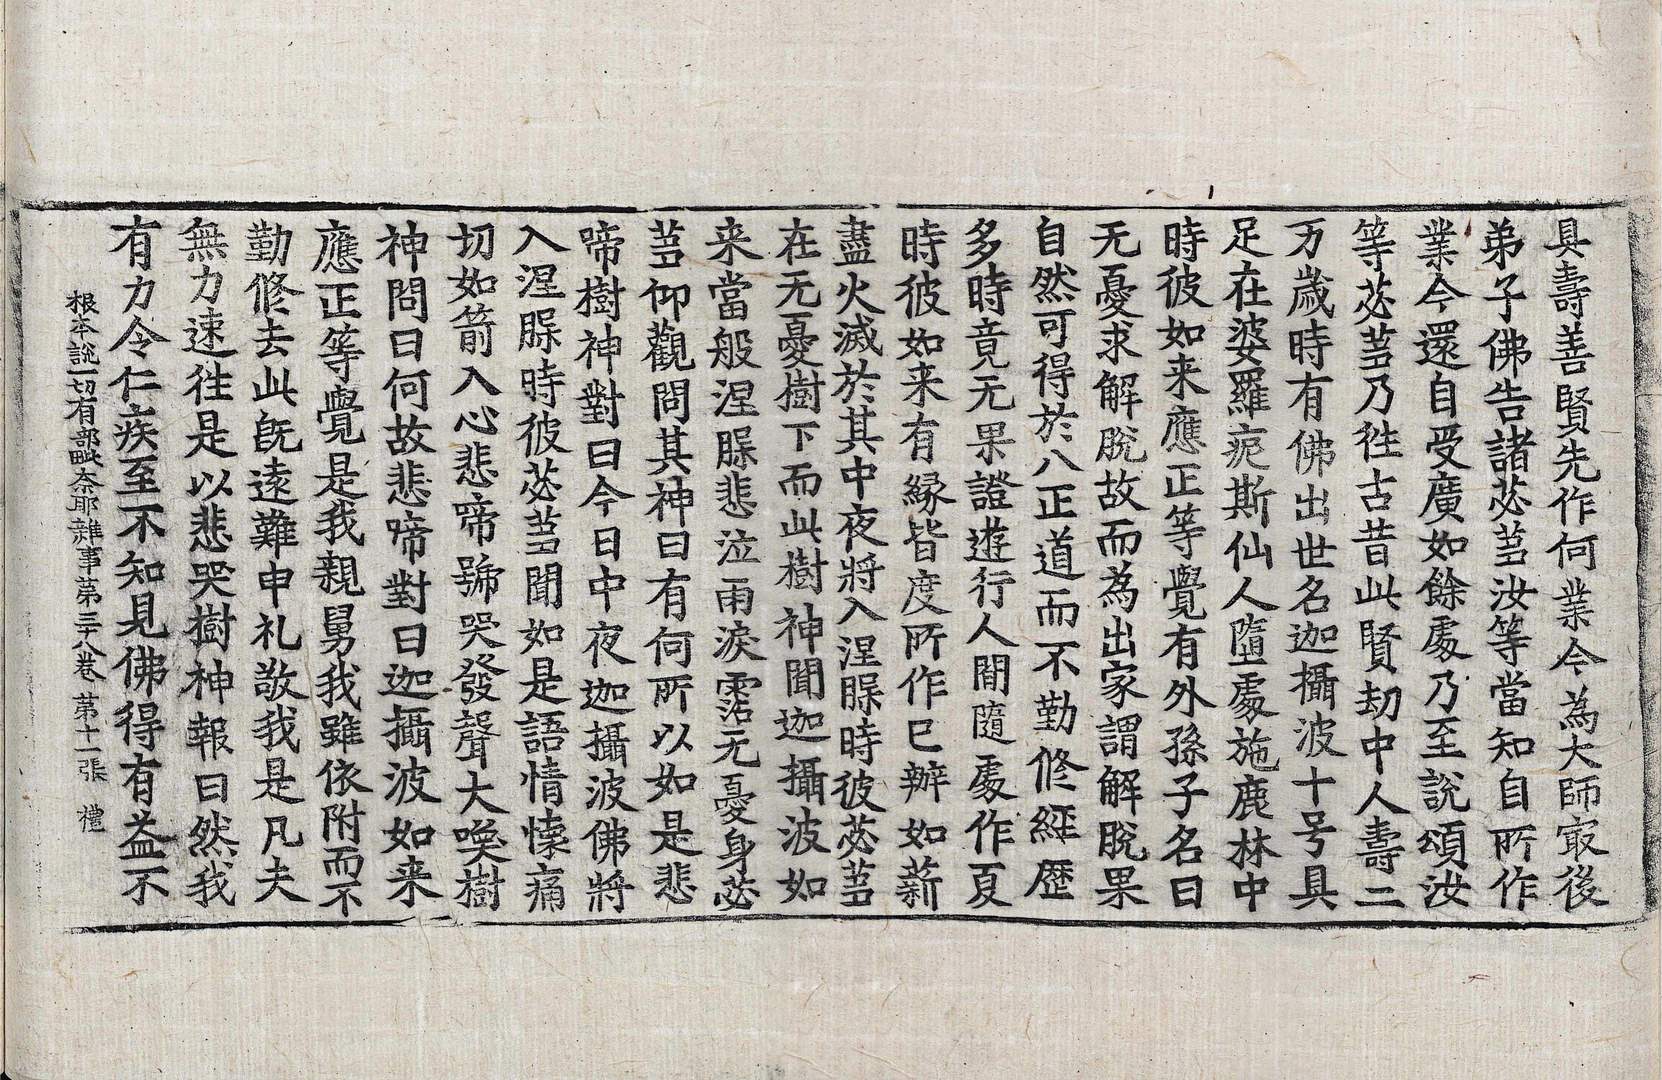 具壽善賢先作何業今為大師㝡後
弟子佛告諸苾芻汝等當知自所作
業今還自受廣如餘處乃至說頌汝
等苾芻乃徃古昔此賢劫中人壽二
万歲時有佛出世名迦攝波十号具
足在婆羅痆斯仙人墮處施鹿林中
時彼如来應正等覺有外孫子名曰
无憂求解脫故而為出家謂解脫果
自然可得於八正道而不勤修經歷
多時竟无果證遊行人間隨處作夏
時彼如来有緣皆度所作已辦如薪
盡火滅於其中夜將入涅槃時彼苾芻
在无憂樹下而此樹神聞迦攝波如
来當般涅槃悲泣雨淚霑无憂身苾
芻仰觀問其神曰有何所以如是悲
啼樹神對曰今日中夜迦攝波佛將
入涅槃時彼苾芻聞如是語情懷痛
切如箭入心悲啼號哭發聲大喚樹
神問曰何故悲啼對曰迦攝波如来
應正等覺是我親舅我雖依附而不
勤修去此旣遠難申礼敬我是凡夫
無力速徃是以悲哭樹神報曰然我
有力令仁疾至不知見佛得有益不
根本說一切有部毗奈耶雜事第三十八卷 第十一張 禮